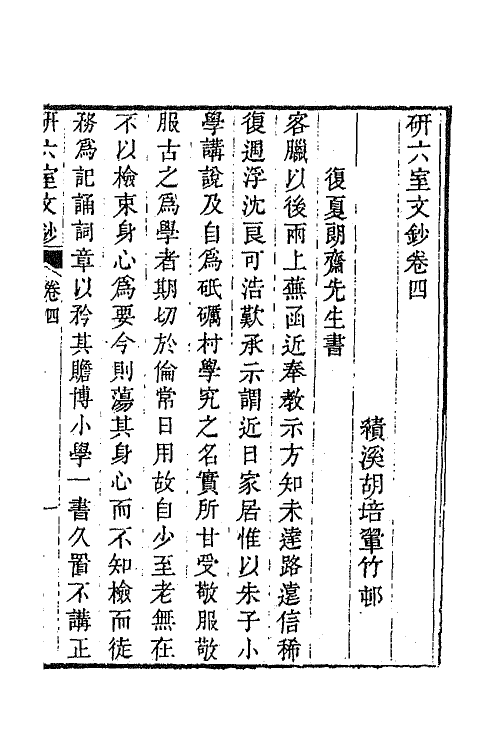 研六室文鈔卷四
績溪胡培翬竹邨
復夏朗齋先生書
客臘以後兩上蕪函近奉教示方知未達路遠信稀
復週浮沈良可浩歎承示謂近日家居惟以朱子小
學講說及自為砥礪村學究之名實所甘受敬服敬
服古之為學者期切於倫常日用故自少至老無在
不以檢束身心為要今則蕩其身心而不知檢而徒
務為記誦詞章以矜其贍博小學一書久置不講正
研六室文鈔 卷四 一